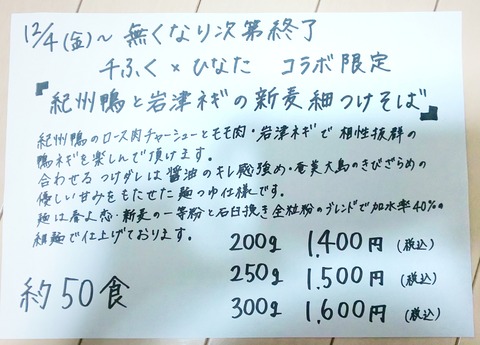 12/4(金)～ 無くなり次第終了
千ふく×ひなた コラボ限定
『紀州鴨と岩津ネギの新麦細つけそば』
紀州鴨のロース肉チャーシューとモモ肉・岩津ネギで相性抜群の
鴨ネギを楽しんで頂けます。
合わせるつけダレは醤油のキレ感強め・奄美大島のきびざらめの
優しい甘みをもたせた麺つゆ仕様です。
麺は春よ恋・新麦の一等粉と石臼挽き全粒粉のブレンドで加水率40%の
細麺で仕上げております。
200g 1,400円(税込)
250g 1,500円(税込)
300g 1,600円(税込)
約50食